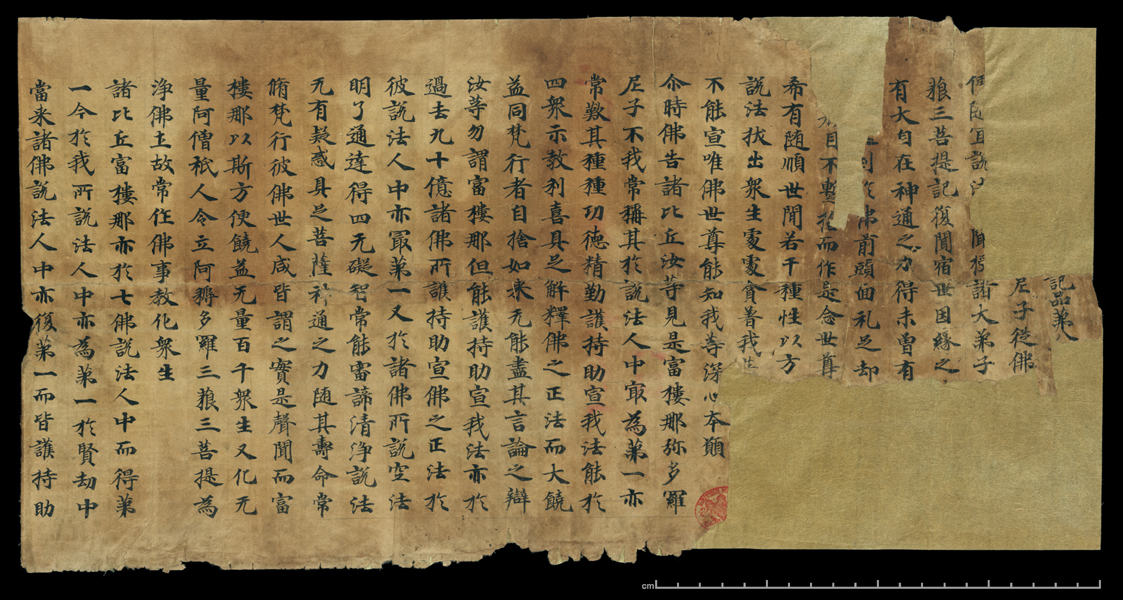 記品第八
尼子從佛
便隨宜說法 諸大弟子
藐三菩提記復聞宿世因緣之
有大自在神通之力得未曾有
到於佛前頭面礼足却
目不暫捨而作是念世尊
希有隨順世間若干種性以方
說法拔出眾生處處貪著我
不能宣唯佛世尊能知我等深心本願
尒時佛告諸比丘汝等見是富樓那弥多羅
尼子不我常稱其於說法人中冣為第一亦
常歎其種種功德精勤護持助宣我法能於
四眾示教利喜具足解釋佛之正法而大饒
益同梵行者自捨如來无能盡其言論之辯
汝等勿謂富樓那但能護持助宣我法亦於
過去九十億諸佛所護持助宣佛之正法於
彼說法人中亦冣第一又於諸佛所說空法
明了通達得四无礙智常能審諦清淨說法
无有疑惑具足菩薩神通之力随其壽命常
脩梵行彼佛世人咸皆謂之實是聲聞而富
樓那以斯方便饒益无量百千眾生又化无
量阿僧祇人令立阿耨多羅三藐三菩提為
淨佛土故常作佛事教化眾生
諸比丘富樓那亦於七佛說法人中而得第
一今於我所說法人中亦為第一於賢劫中
當来諸佛說法人中亦復第一而皆護持助
cm